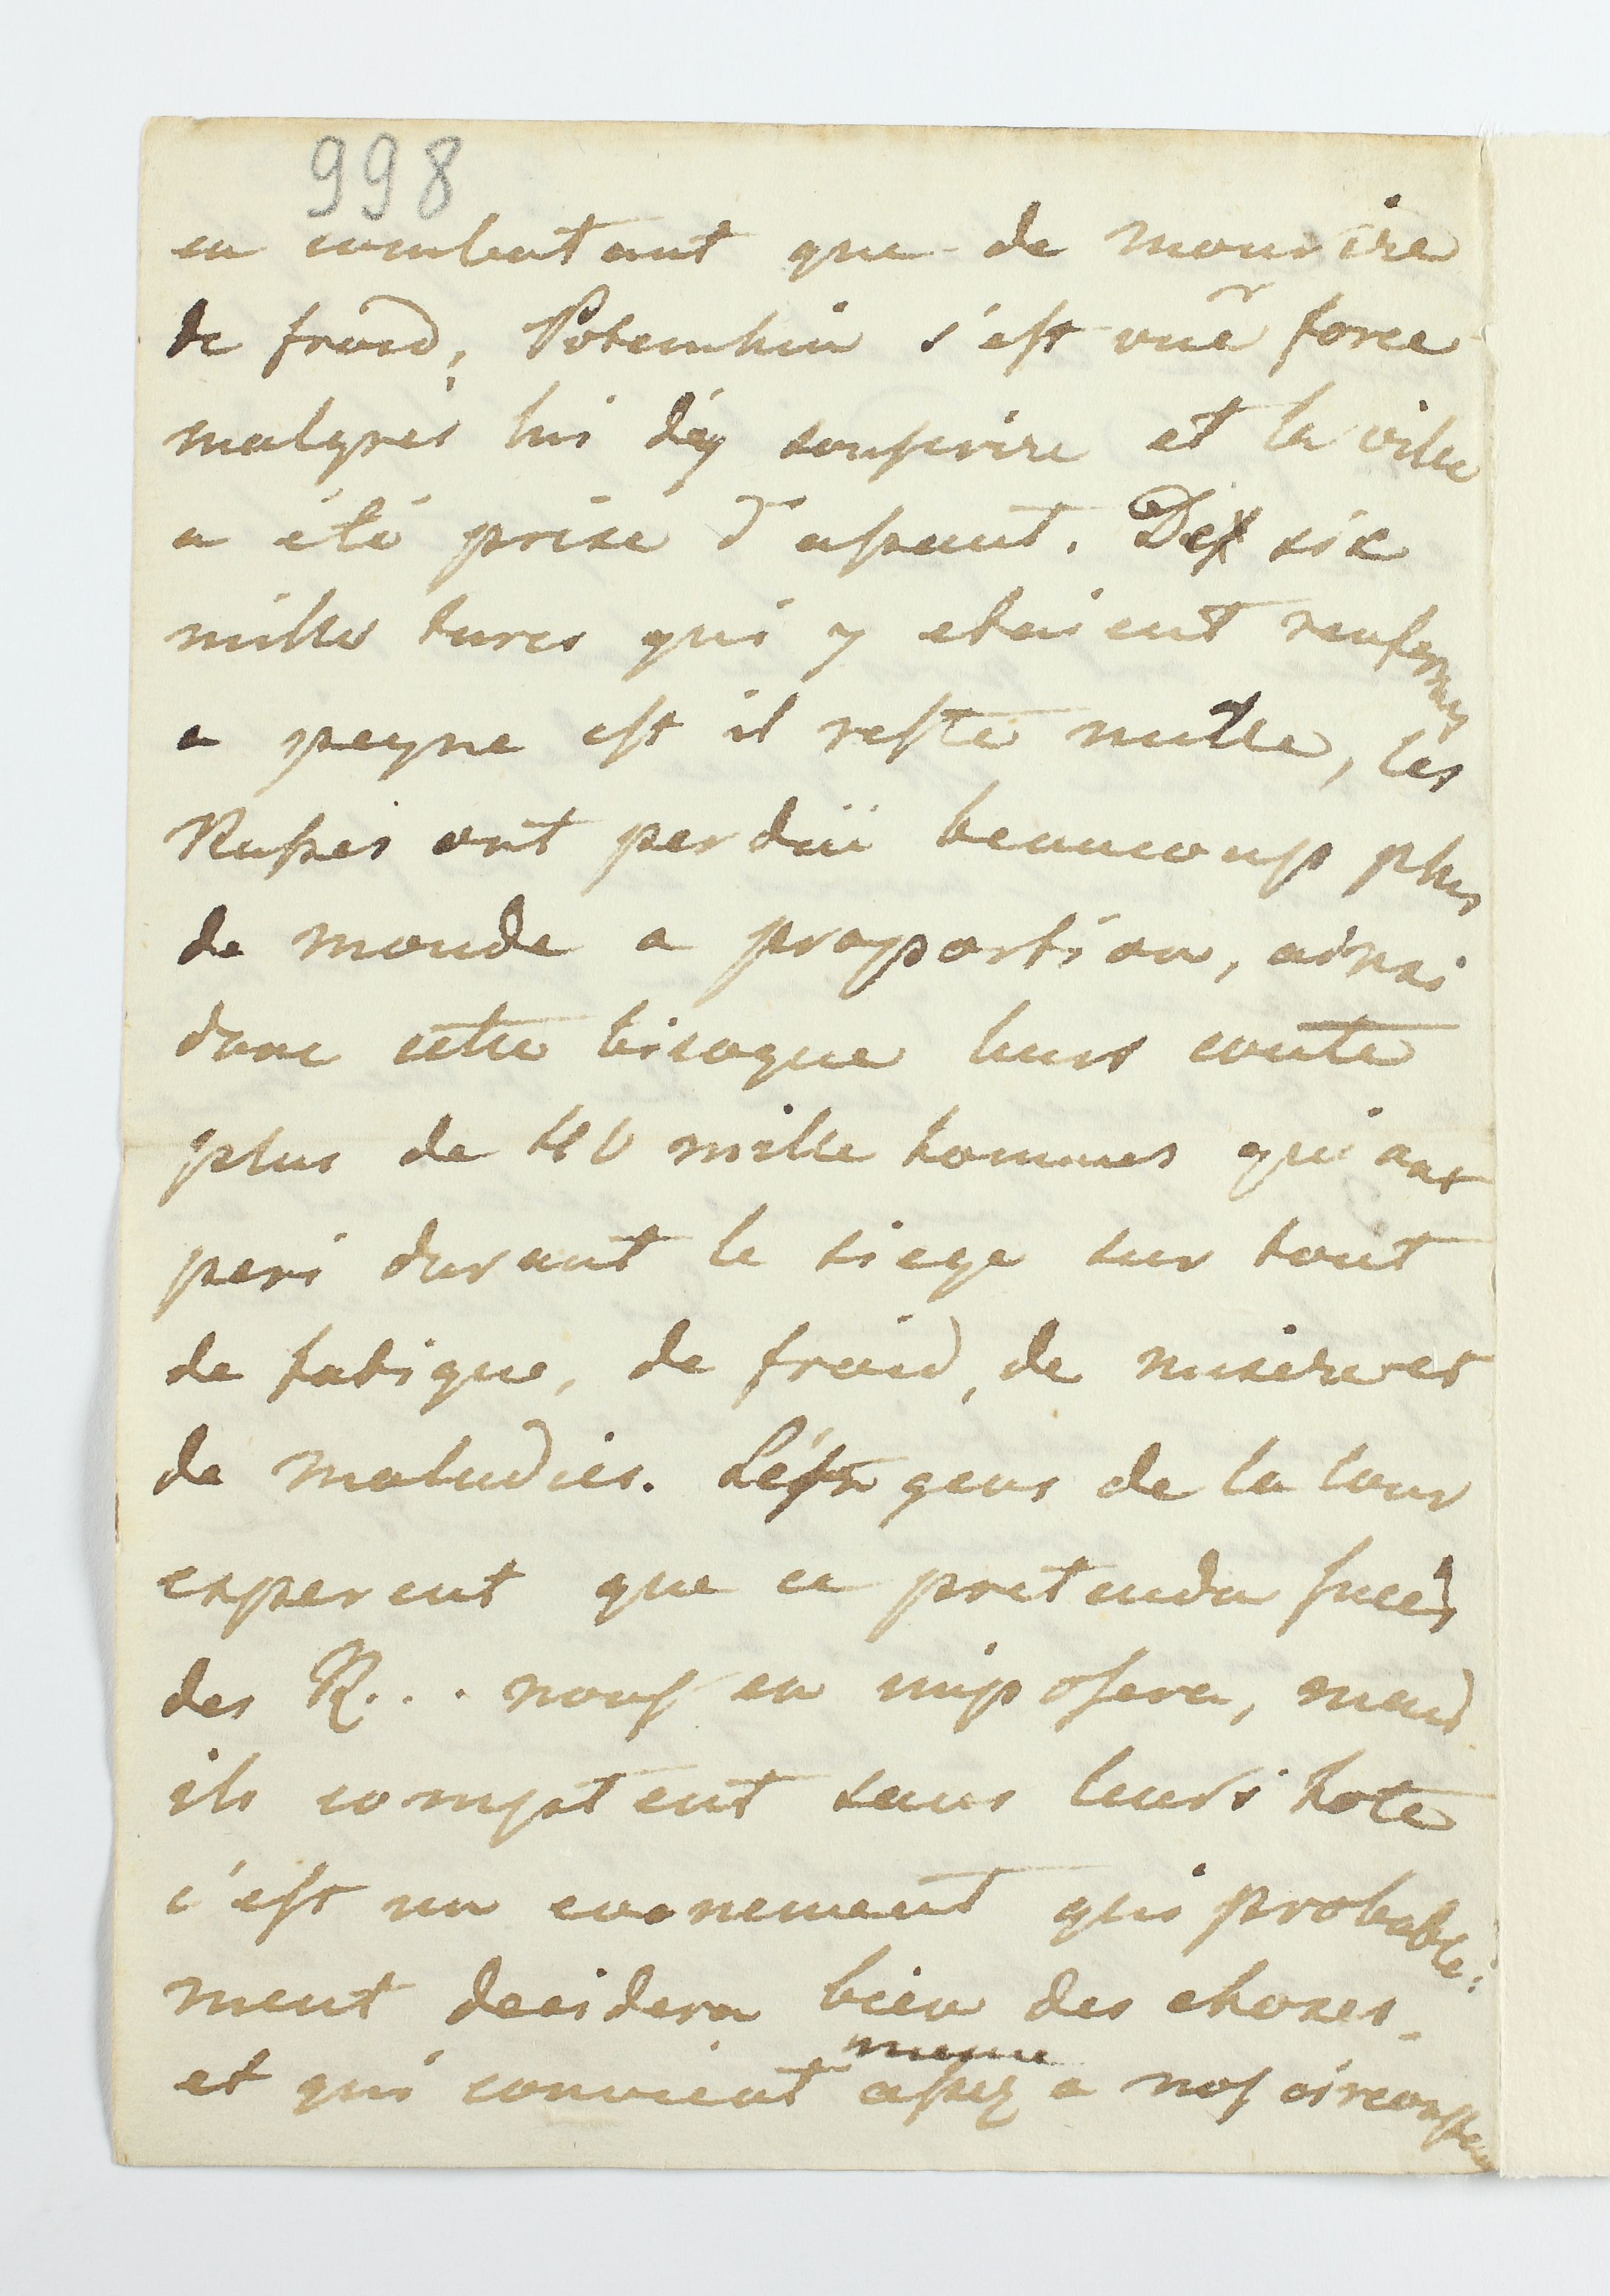 998
en combatant que de mourire
de froid, Potemkin s'est vuë force
malgrés lui d'ÿ souscrire et la ville
a été prise d'assaut. Des six
mille turcs qui y etaient renfermés
a peyne est il resté mille, les
Russes ont perduë beaucoup plus
de monde a proportion, ainsi
donc cette bicoque leurs coute
plus de 40 mille hommes qui ont
peri durant le siege sur tout
de fatigue, de froid, de miseres
de maladies. Les gens de la cour
esperent que ce pretendu succés
des R... nous en imposera, mais
ils comptent sans leurs hote
c'est un evenement qui probable:
ment decidera bien des choses
même
et qui convient assez a nos circonstan